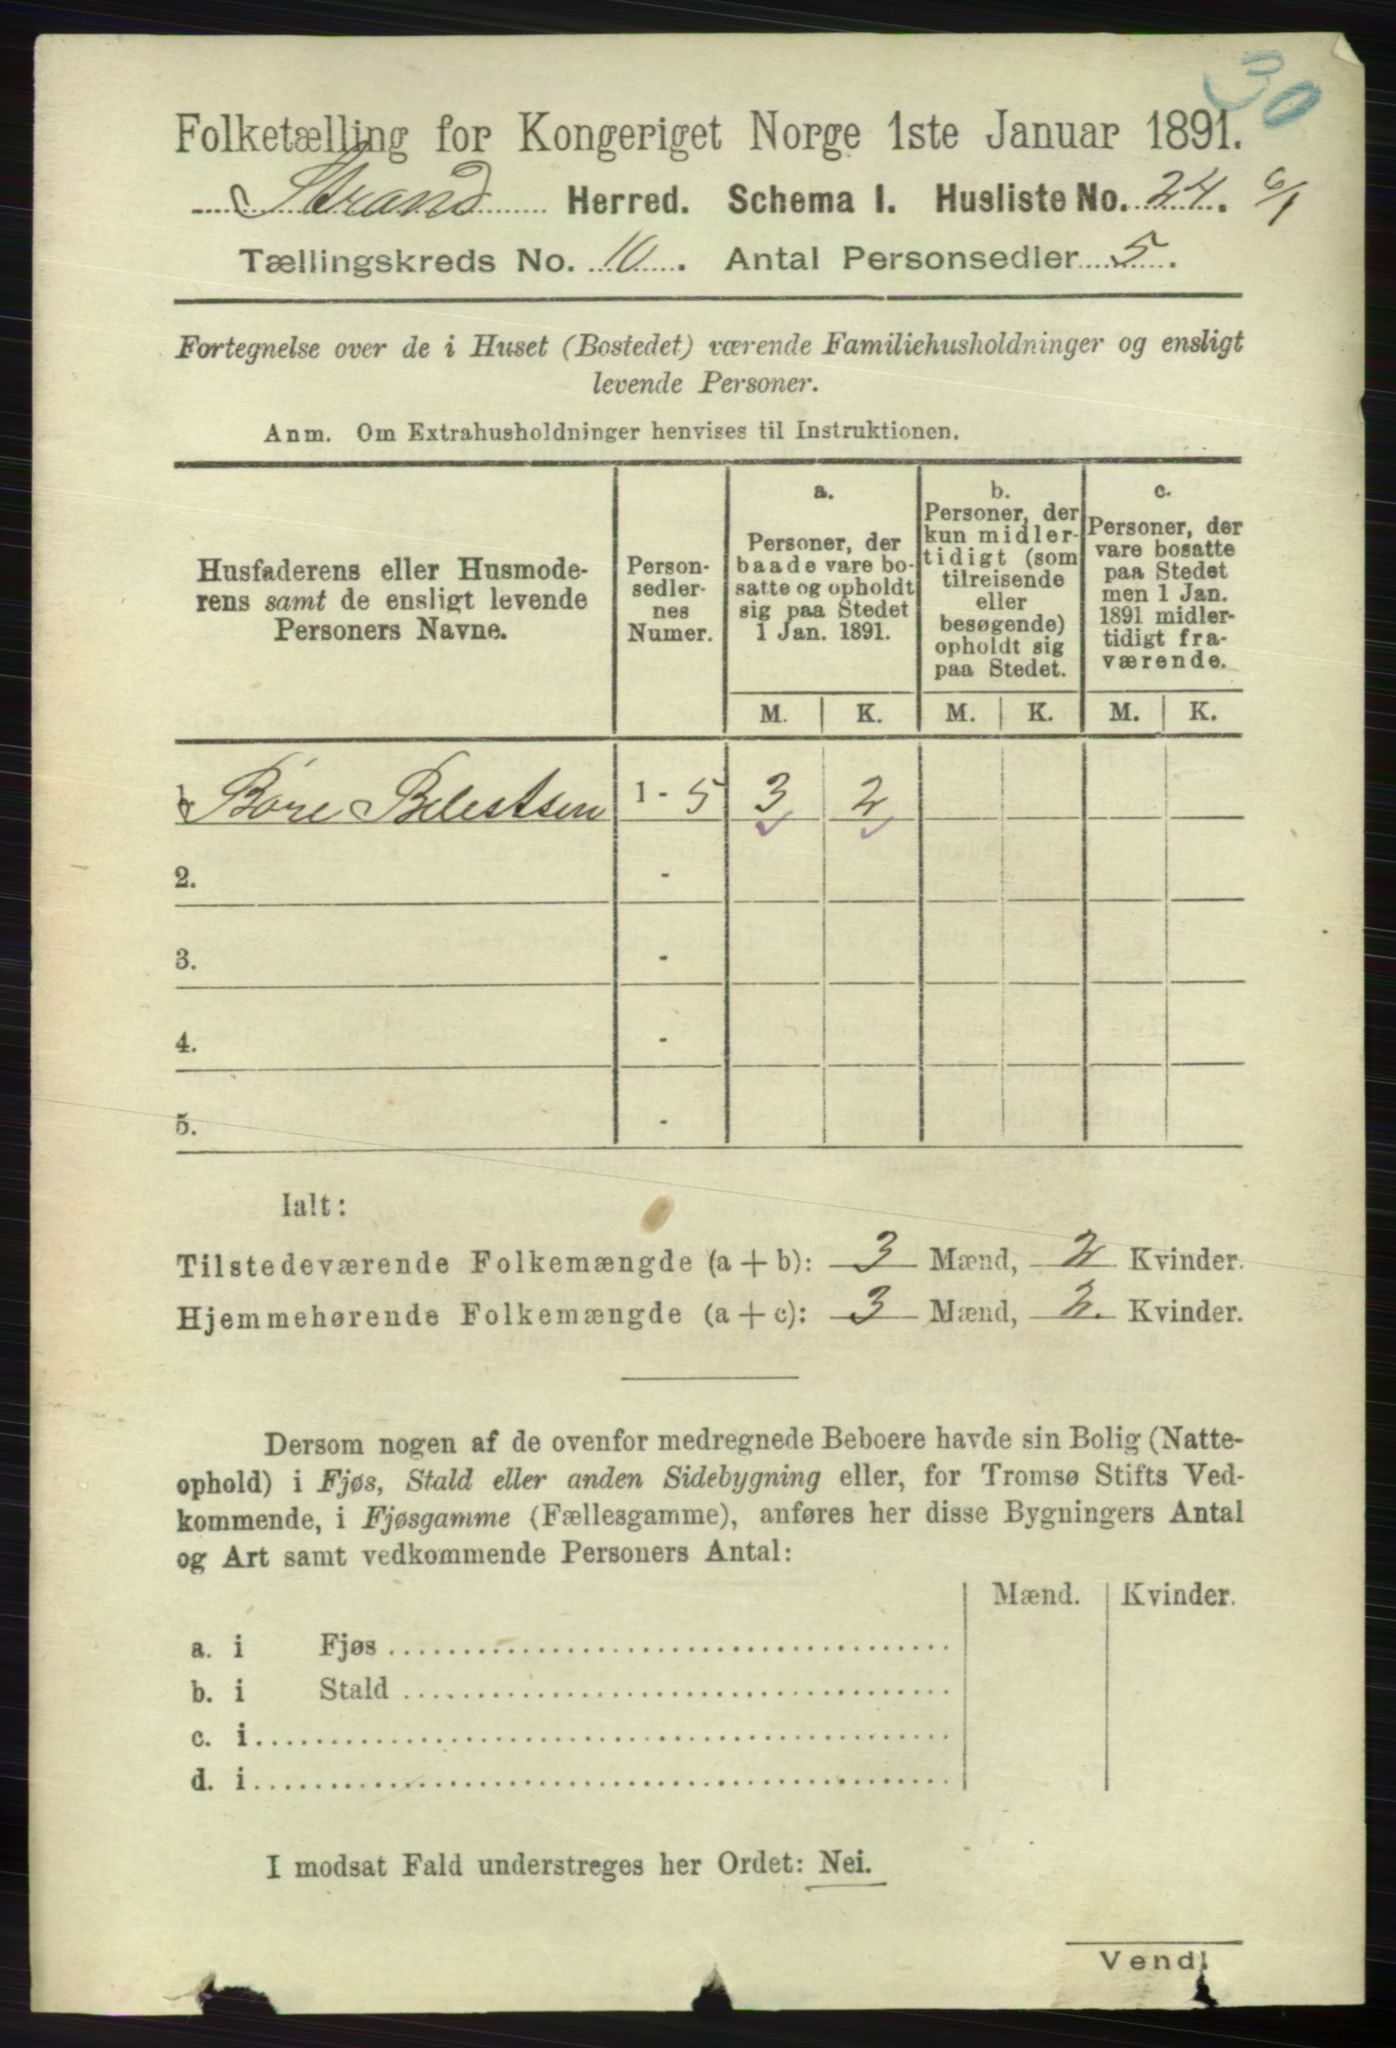 30
Folketælling for Kongeriget Norge 1ste Januar 1891.
Strand Herred. Schema I. Husliste No. 24. 6/1
Tællingskreds No. 10. Antal Personsedler 5.
Fortegnelse over de i Huset (Bostedet) værende Familiehusholdninger og ensligt
levende Personer.
Anm. Om Extrahusholdninger henvises til Instruktionen.
Husfaderens eller Husmode-
rens samt de ensligt levende
Personers Navne.
Person-
sedler-
nes
Numer.
a.
Personer, der
baade vare bo-
satte og opholdt
sig paa Stedet
1 Jan. 1891.
b.
Personer, der
kun midler-
tidigt (som
tilreisende
eller
besøgende)
opholdt sig
paa Stedet.
c.
Personer, der
vare bosatte
paa Stedet
men 1 Jan.
1891 midler-
tidigt fra-
værende.
M. K. M. K. M. K.
1. Bore 1 - 5 3 2
2. -
3. -
4. -
5. -
Ialt:
Tilstedeværende Folkemængde (a + b): 3 Mænd, 2 Kvinder.
Hjemmehørende Folkemængde (a + c): 3 Mænd, 2. Kvinder.
Dersom nogen af de ovenfor medregnede Beboere havde sin Bolig (Natte-
ophold) i Fjøs, Stald eller anden Sidebygning eller, for Tromsø Stifts Ved-
kommende, i Fjøsgamme (Fællesgamme), anføres her disse Bygningers Antal
og Art samt vedkommende Personers Antal:
Mænd. Kvinder.
a. i Fjøs
b. i Stald
c. i
d. i
I modsat Fald understreges her Ordet: Nei.
Vend!